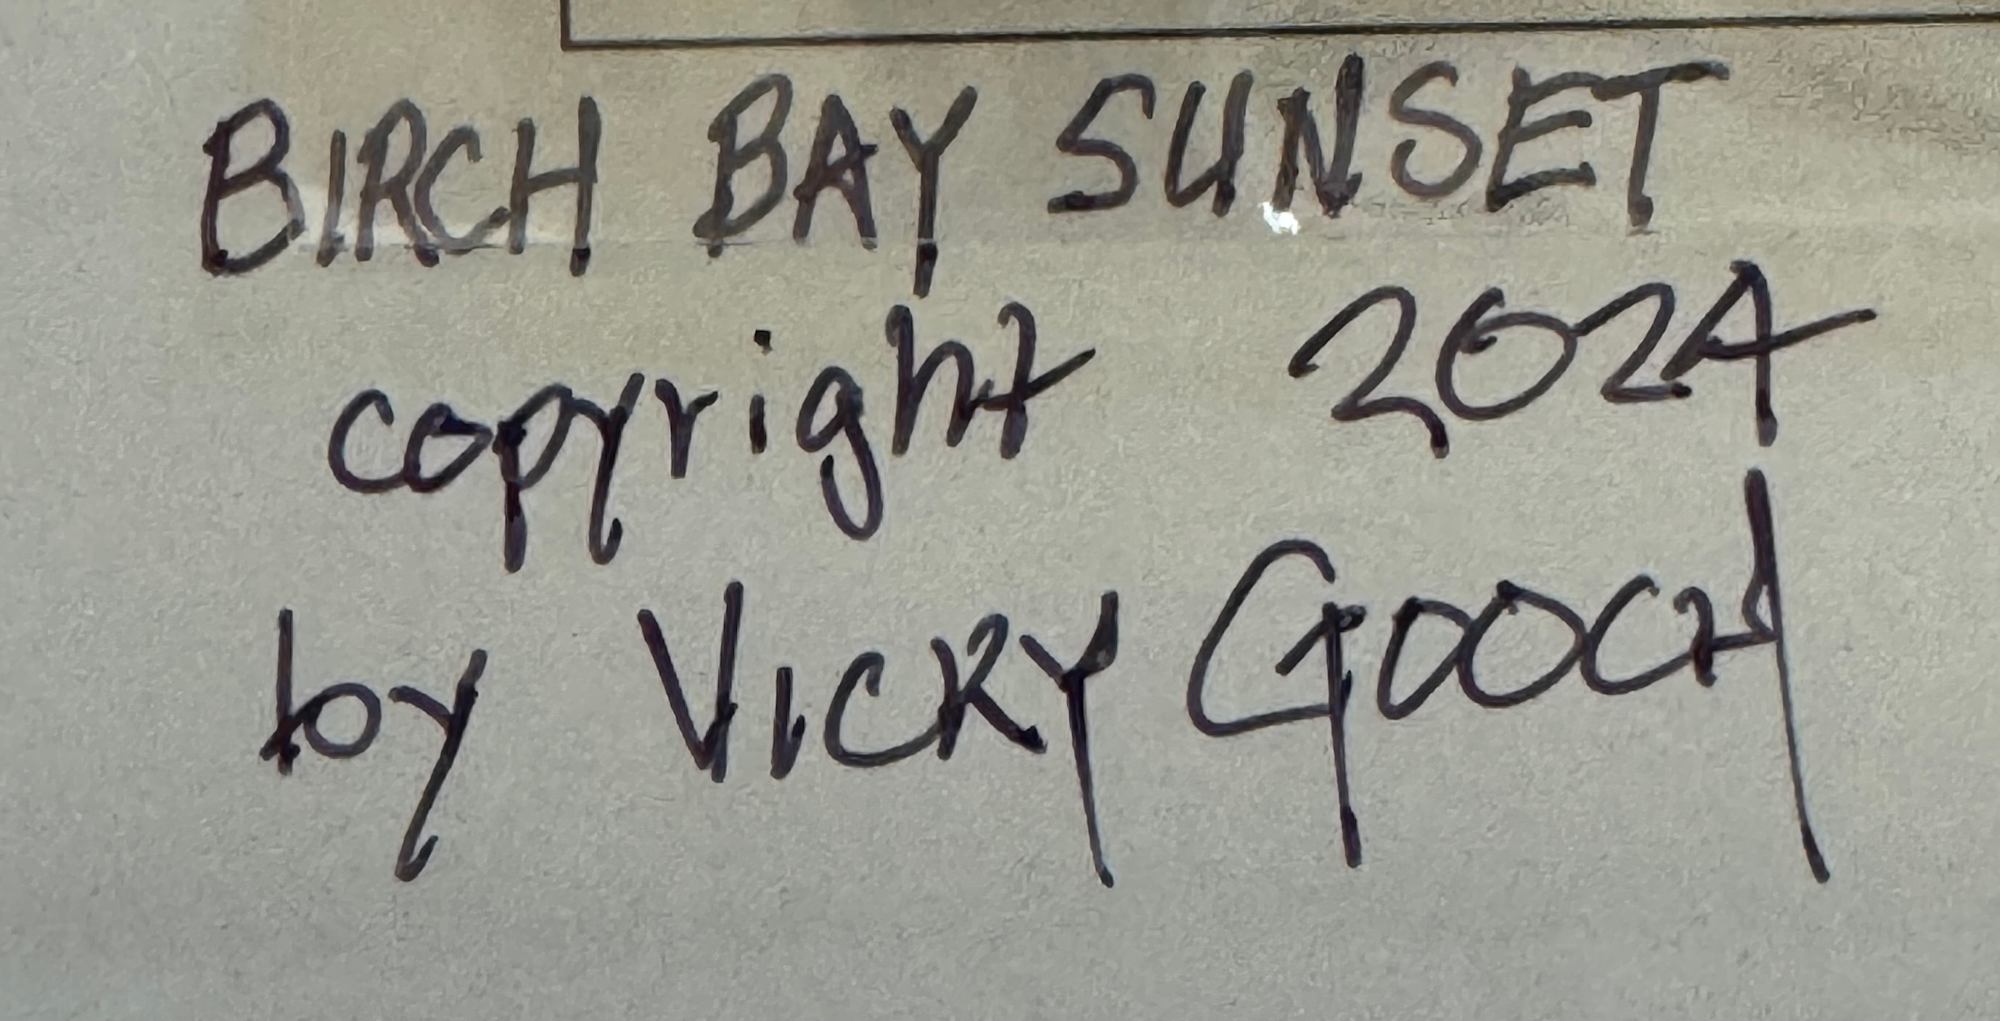 BIRCH BAY SUNSET
copyright 2024
by VICKY GOOCH